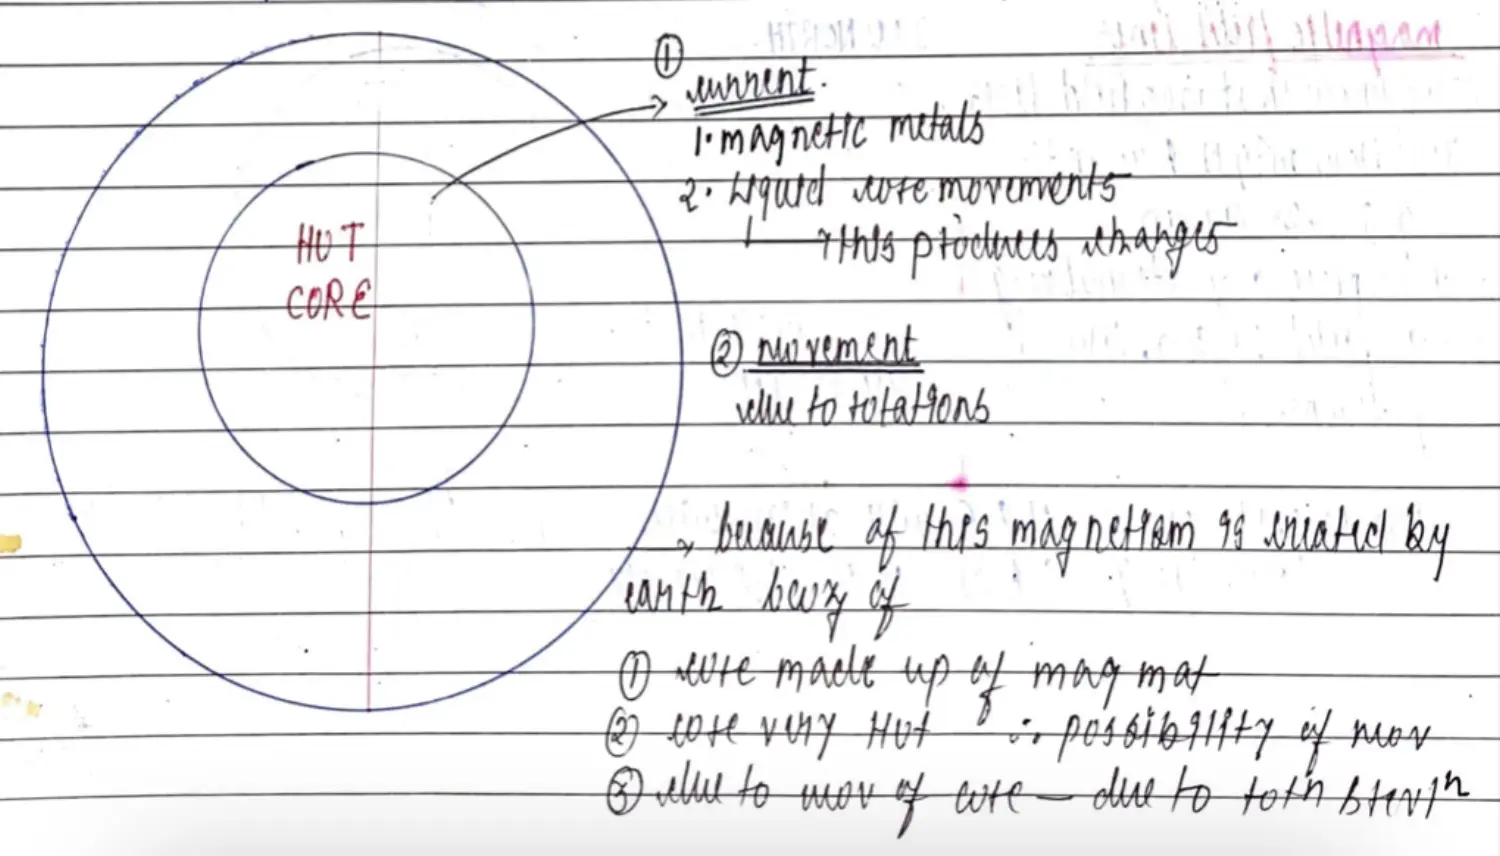 HOT
CORE
①
current.
1. magnetic metals
2. Liquid core movements
this produces changes
② movement
due to rotations
because of this magnetism is created by
earth bcoz of
① core made up of mag mat
② core very Hot ∴ possibility of mov
③ due to mov of core - due to rotn
magnetic field line